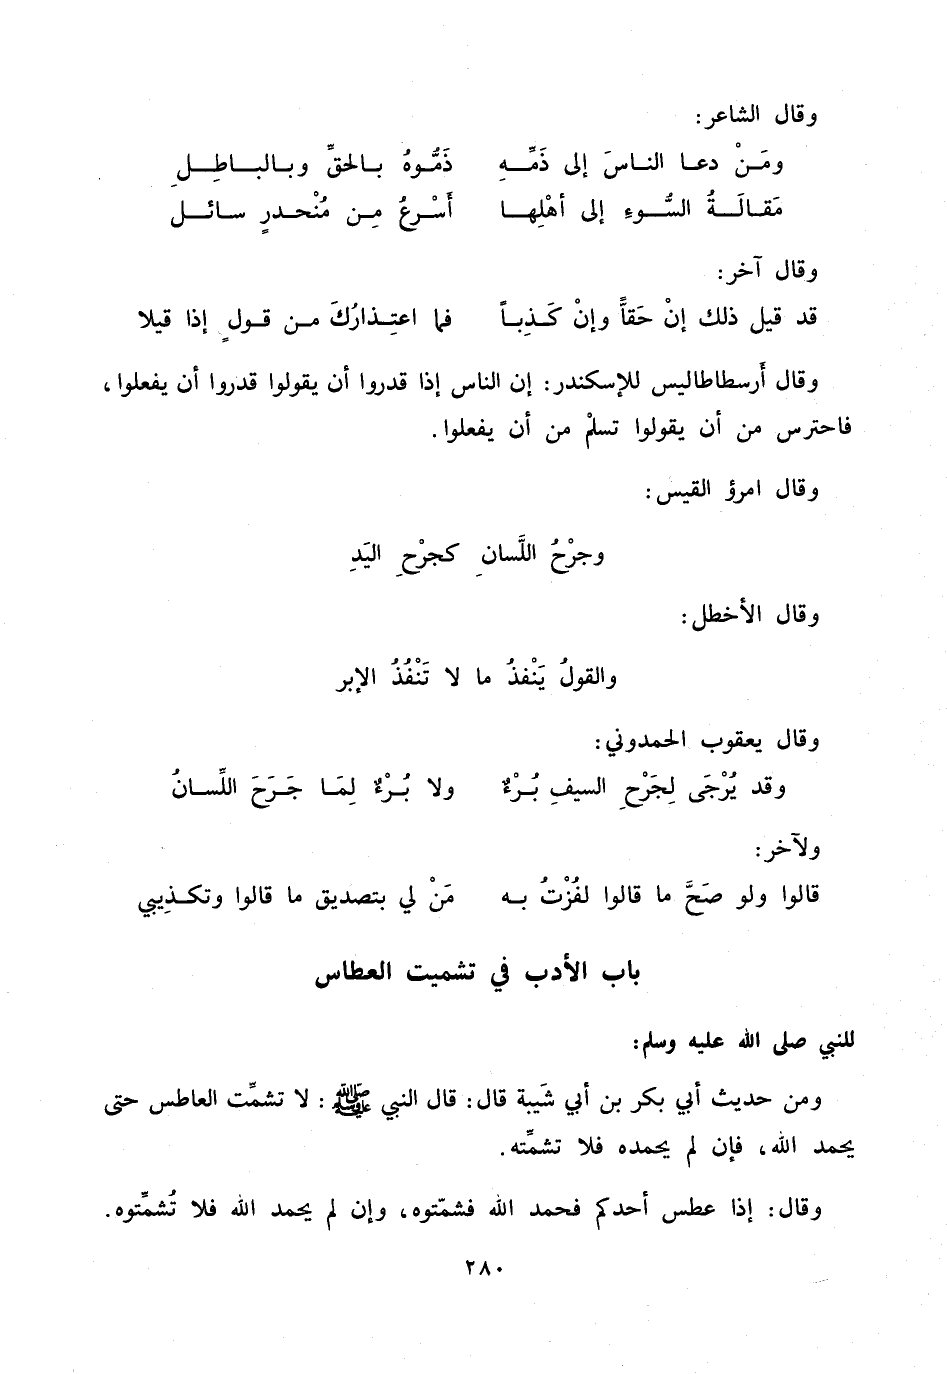 وقال الشاعر:
ومَنْ دعا الناسَ إلى ذَمِّهِ ذَمُّوهُ بالحقِّ وبالباطِلِ
مَقالَةُ السُّوءِ إلى أهْلِها أَسْرعُ مِن مُنْحدرٍ سائل
وقال آخر:
قد قيل ذلك إنْ حَقاًّ وإنْ كَذِباً فما اعتِذارُكَ من قولٍ إذا قيلا
وقال أَرسطاطاليس للإسكندر: إن الناس إذا قدروا أن يقولوا قدروا أن يفعلوا،
فاحترس من أن يقولوا تسلمْ من أن يفعلوا.
وقال امرؤ القيس:
وجرْحُ اللَّسانِ كجرْحِ اليَدِ
وقال الأخطل:
والقولُ يَنْفذُ ما لا تَنْفُذُ الإبر
وقال يعقوب الحمدوني:
وقد يُرْجَى لِجَرْحِ السيفِ بُرْءٌ ولا بُرْءٌ لِمَا جَرَحَ اللِّسانُ
ولآخر:
قالوا ولو صَحَّ ما قالوا لفُزْتُ به مَنْ لي بتصديق ما قالوا وتكذِيبي
باب الأدب في تشميت العطاس
للنبي صلى الله عليه وسلم:
ومن حديث أبي بكر بن أبي شَيبة قال: قال النبي ﷺ: لا تشمِّت العاطس حتى
يحمد الله، فإن لم يحمده فلا تشمِّته.
وقال: إذا عطس أحدكم فحمد الله فشمّتوه، وإن لم يحمد الله فلا تُشمِّتوه.
٢٨٠